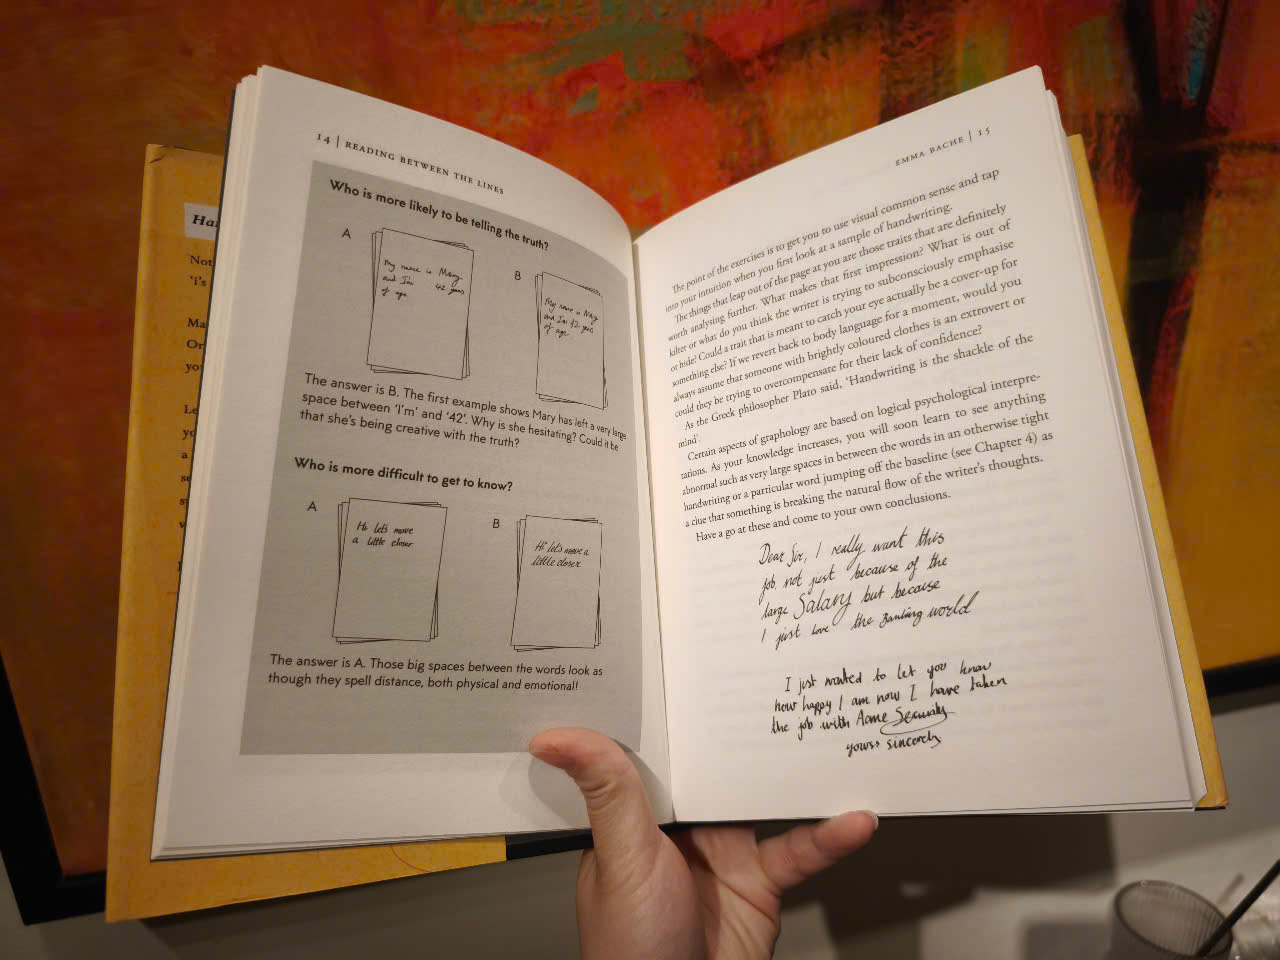 Ha
Not
'I's
Ma
Or
yo
Le
yo
a
14 | READING BETWEEN THE LINES
Who is more likely to be telling the truth?
A
My name is Mary
and I'm 42 years
of age
B
My name is Mary
and I'm 42 years
of age
The answer is B. The first example shows Mary has left a very large
space between 'I'm' and '42'. Why is she hesitating? Could it be
that she's being creative with the truth?
Who is more difficult to get to know?
A
Hi let's move
a little closer
B
Hi let's move a
little closer
The answer is A. Those big spaces between the words look as
though they spell distance, both physical and emotional!
EMMA BACHE | 15
The point of the exercises is to get you to use visual common sense and tap
into your intuition when you first look at a sample of handwriting.
The things that leap out of the page at you are those traits that are definitely
worth analysing further. What makes that first impression? What is out of
kilter or what do you think the writer is trying to subconsciously emphasise
or hide? Could a trait that is meant to catch your eye actually be a cover-up for
something else? If we revert back to body language for a moment, would you
always assume that someone with brightly coloured clothes is an extrovert or
could they be trying to overcompensate for their lack of confidence?
As the Greek philosopher Plato said, 'Handwriting is the shackle of the
mind'.
Certain aspects of graphology are based on logical psychological interpre-
tations. As your knowledge increases, you will soon learn to see anything
abnormal such as very large spaces in between the words in an otherwise tight
handwriting or a particular word jumping off the baseline (see Chapter 4) as
a clue that something is breaking the natural flow of the writer's thoughts.
Have a go at these and come to your own conclusions.
Dear Sir, I really want this
job, not just because of the
large Salary but because
I just love the Banking world
I just wanted to let you know
how happy I am now I have taken
the job with Acme Security
yours sincerely